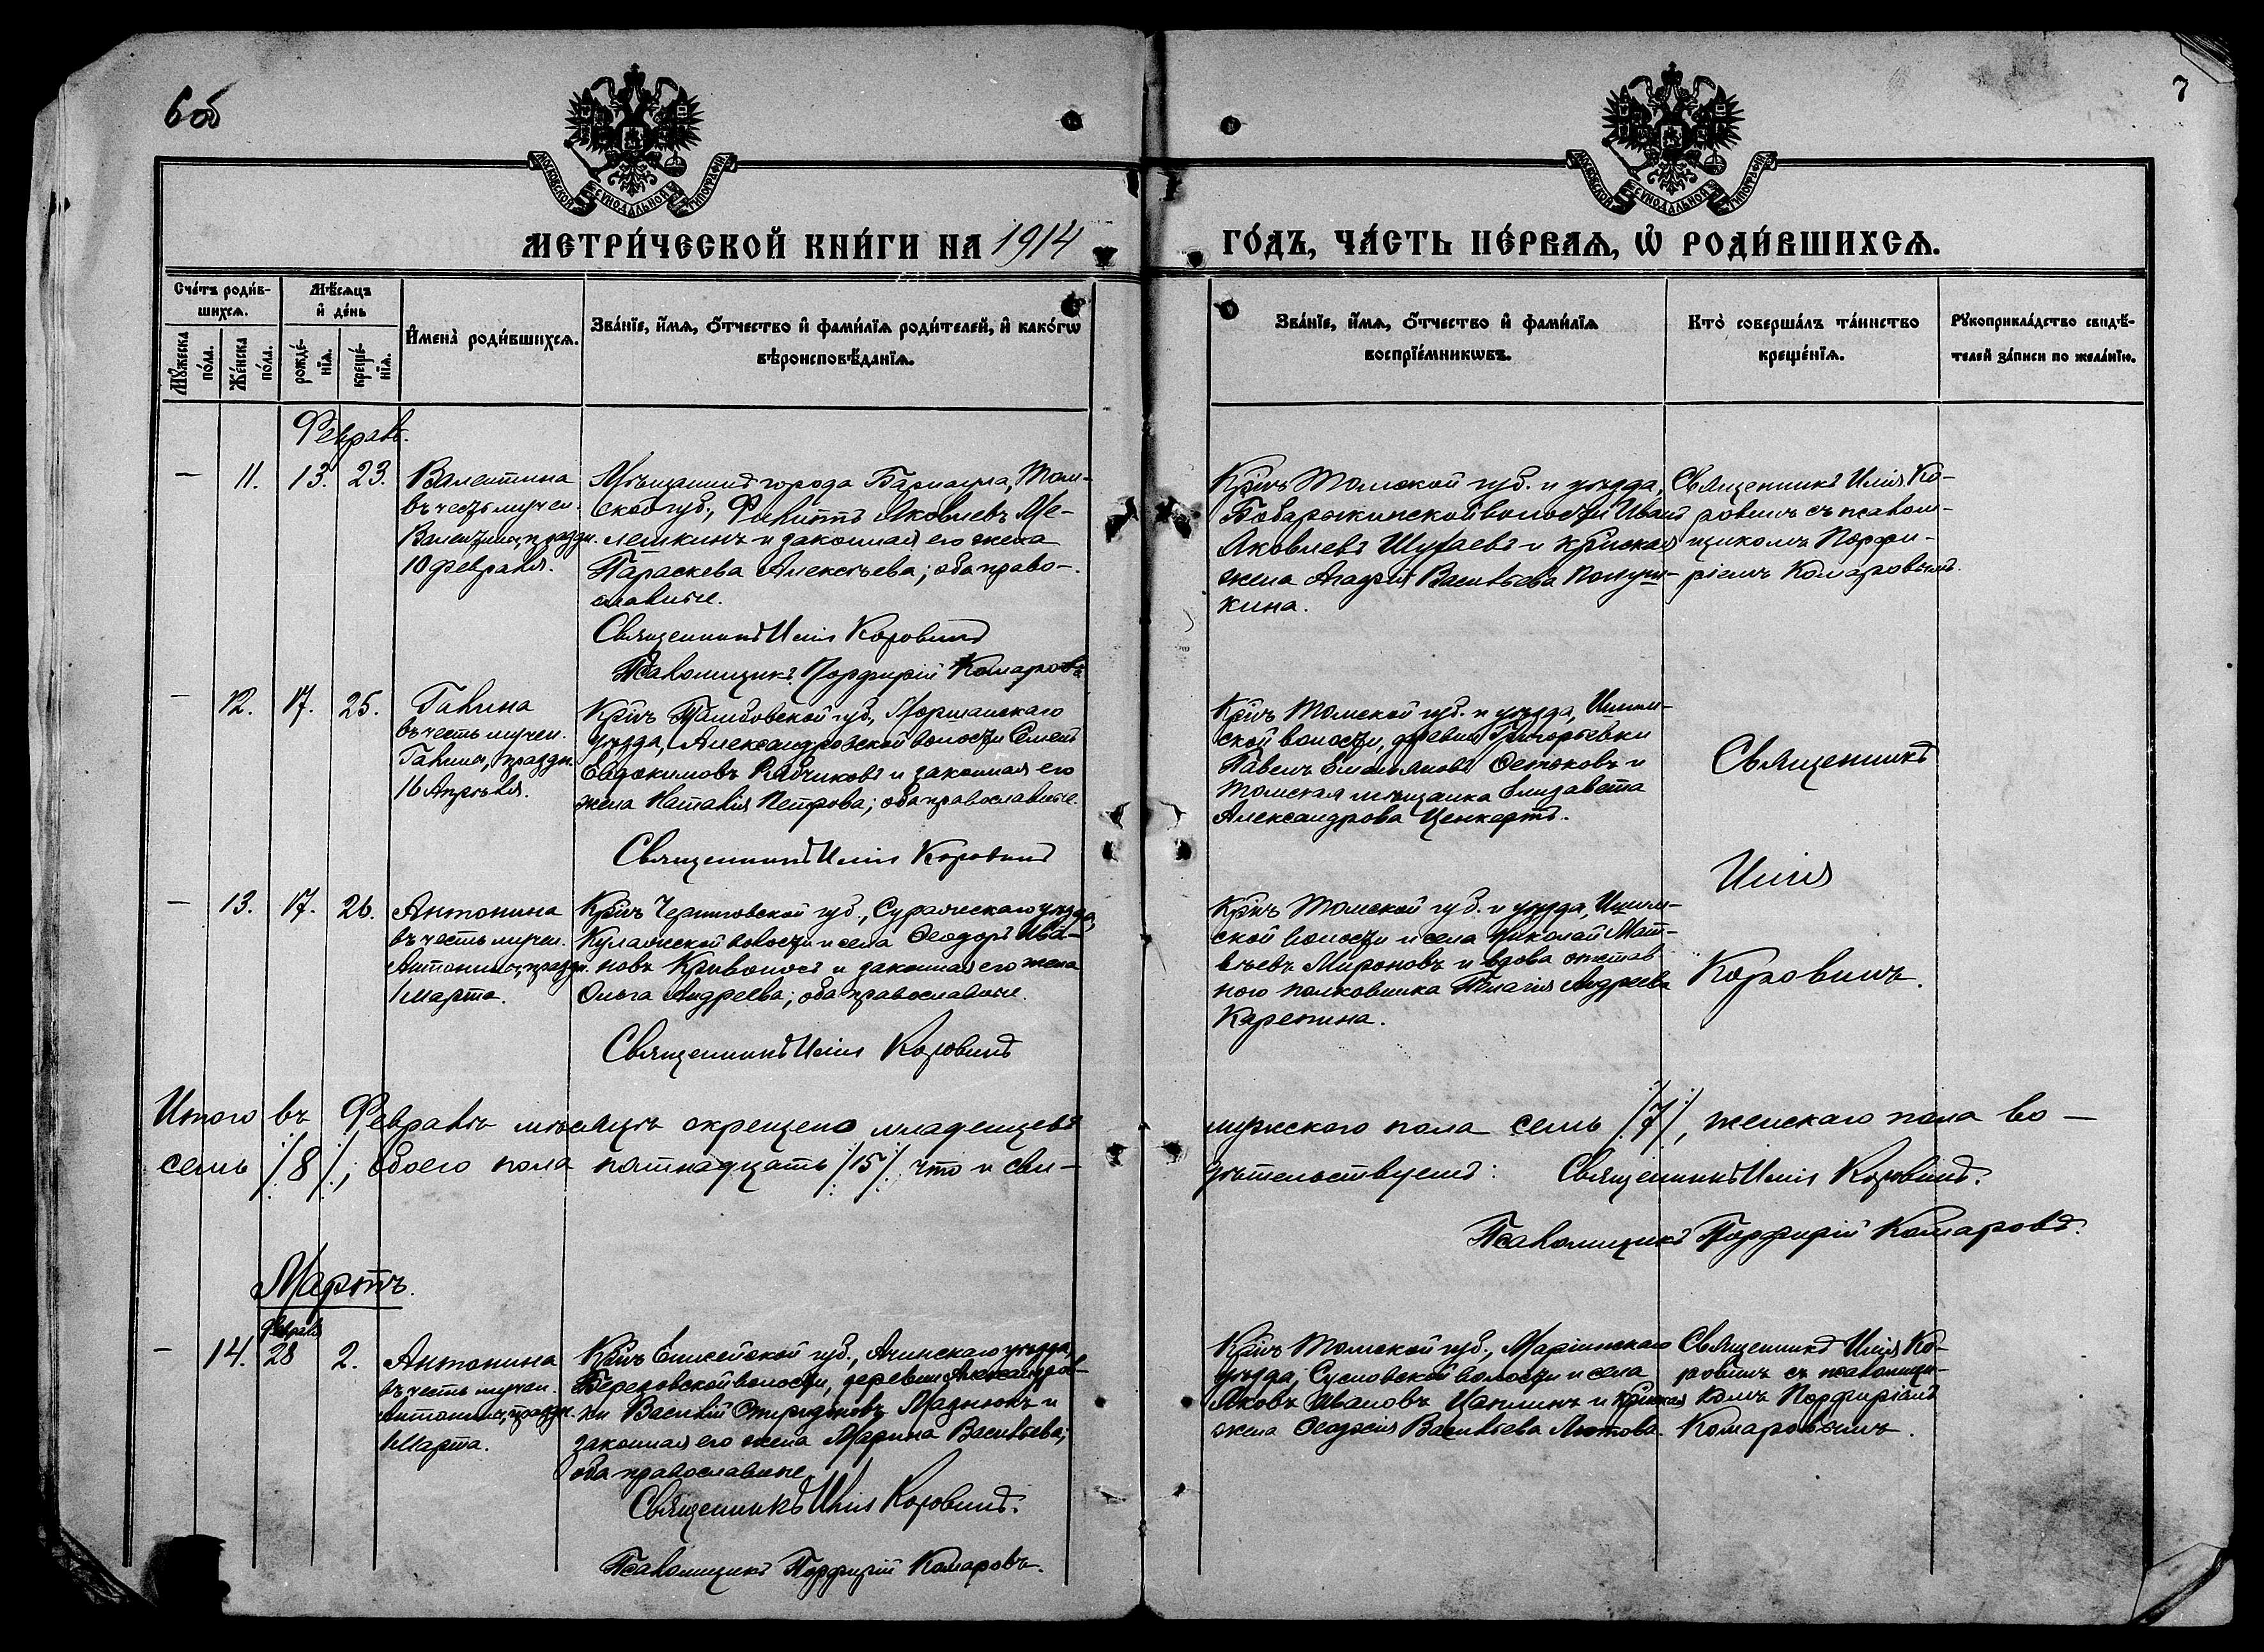 6 об
7
МОСКОВСКОЙ СѴНОДАЛЬНОЙ ТИПОГРАФІИ
МОСКОВСКОЙ СѴНОДАЛЬНОЙ ТИПОГРАФІИ
МЕТРИ́ЧЕСКОЙ КНИ́ГИ НА 1914 ГО́ДЪ, ЧА́СТЬ ПЕ́РВАѦ, Ѡ҆ РОДИ́ВШИХСѦ.
Сче́тъ роди́в-
шихсѧ.
Мѣ́сѧцъ
и҆ де́нь
Мꙋ́жеска
по́ла.
Же́нска
по́ла.
рожде́-
нїѧ.
креще́-
нїѧ.
И҆мена̀ роди́вшихсѧ.
Зва́нїе, и҆́мѧ, ѻ҆́тчество и҆ фами́лїѧ роди́телей, и҆ како́гѡ
вѣроисповѣ́данїѧ.
Зва́нїе, и҆́мѧ, ѻ҆́тчество и҆ фами́лїѧ
воспрїе́мникѡвъ.
Кто̀ соверша́лъ та́инство
креще́нїѧ.
Рꙋкоприкла́дство свидѣ́-
телей за́писи по жела́нїю.
Февраль.
— 11. 13. 23.
Валентина
въ честь мучен.
Валентины, праздн.
10 февраля.
Мѣщанинъ города Барнаула, Том-
ской губ., Филиппъ Яковлевъ Ме-
лешкинъ и законная его жена
Параскева Алексѣева; оба право-
славные.
Священникъ Илія Коровинъ
Псаломщикъ Порфирій Комаровъ
Кр̃нъ Томской губ. и уѣзда,
Бобарыкинской волости Иванъ
Яковлевъ Шугаевъ и кр̃нская
жена Агафія Васильева Полуш-
кина.
Священникъ Илія Ко-
ровинъ съ псалом-
щикомъ Порфи-
ріемъ Комаровымъ.
— 12. 17. 25.
Галина
въ честь мучен.
Галины, праздн.
16 Апрѣля.
Кр̃нъ Тамбовской губ., Моршанскаго
уѣзда, Александровской волости Семенъ
Евдокимовъ Рябчиковъ и законная его
жена Наталія Петрова; оба православные.
Священникъ Илія Коровинъ
Кр̃нъ Томской губ. и уѣзда, Ишим-
ской волости, деревни Григорьевки
Павелъ Емельяновъ Остюковъ и
Томская мѣщанка Елизавета
Александрова Ценкертъ.
Священникъ
Илія
Коровинъ.
— 13. 17. 26.
Антонина
въ честь мучен.
Антонины, праздн.
1 марта.
Кр̃нъ Черниговской губ., Суражскаго уѣзда,
Кулажской волости и села Ѳеодоръ Ива-
новъ Кривоносъ и законная его жена
Ольга Андреева; оба православные.
Священникъ Илія Коровинъ
Кр̃нъ Томской губ. и уѣзда, Ишим-
ской волости и села Николай Мат-
вѣевъ Мироновъ и вдова отстав
ного полковника Пелагія Андреева
Карепина.
Итого въ Февралѣ мѣсяцѣ окрещено младенцевъ мужского пола семь /7/, женскаго пола во-
семь /8/, обоего пола пятнадцать /15/ что и сви-
дѣтельствуемъ: Священникъ Илія Коровинъ.
Псаломщикъ Порфирій Комаровъ.
Мартъ.
февраля
— 14. 28 2.
Антонина
въ честь мучен.
Антонины, праздн.
1 Марта.
Кр̃нъ Енисейской губ., Ачинскаго уѣзда,
Березовской волости, деревни Александров-
ки Василій Спиридоновъ Мадонюкъ и
законная его жена Марина Васильева;
оба православные
Священникъ Илія Коровинъ.
Псаломщикъ Порфирій Комаровъ.
Кр̃нъ Томской губ., Маріинскаго
уѣзда, Сусловской волости и села
Яковъ Ивановъ Цаплинъ и кр̃нская
жена Ѳеодосія Васильева Лютова.
Священникъ Илія Ко-
ровинъ съ псаломщи-
комъ Порфиріемъ
Комаровымъ.